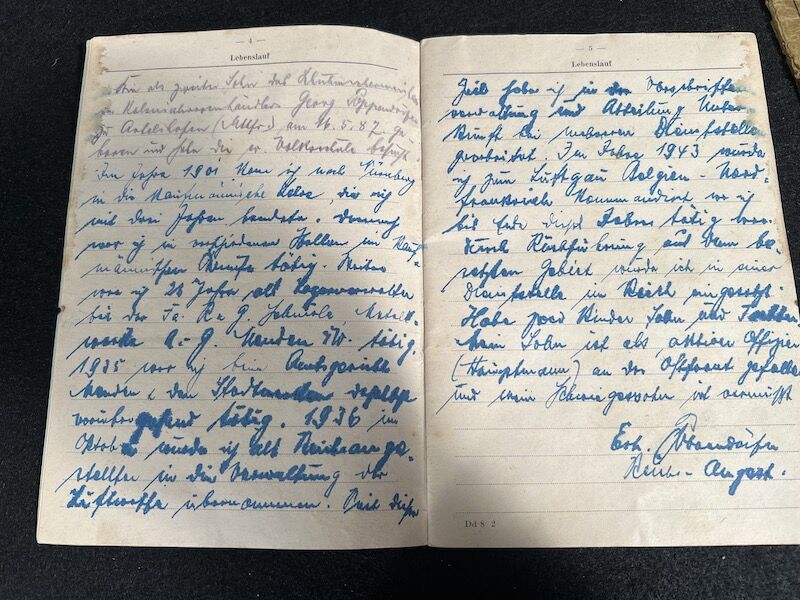 — 4 —
Lebenslauf
Bin als zweiter Sohn des
Kolonialwarenhändlers Georg
zu Artelshofen (Mttfr.) am 16.5.87 ge-
boren und habe die Volksschule besucht.
Im Jahre 1901 kam ich nach Nürnberg
in die kaufmännische Lehre, die ich
mit drei Jahren beendete. Darnach
war ich in verschiedenen Stellen im kauf-
männischen Berufe tätig. Weiter
war ich 20 Jahre als Lagerverwalter
bei der Fa. R & G Schmöle, Metall-
werke A.-G. Menden i/W. tätig.
1935 war ich beim Amtsgericht
Menden & den Stadtwerken daselbst
vorübergehend tätig. 1936 im
Oktober wurde ich als Reichsange-
stellter in die Verwaltung der
Luftwaffe übernommen. Seit dieser
— 5 —
Lebenslauf
Zeit habe ich in der Vorschriften
verwaltung und Abteilung Unter
kunft bei mehreren Dienststellen
gearbeitet. Im Jahre 1943 wurde
ich zum Luftgau Belgien - Nord-
frankreich kommandiert, wo ich
bis Ende dieses Jahres tätig war.
Durch Rückführung aus dem be-
setzten Gebiet wurde ich in einer
Dienststelle im Reich eingesetzt.
Habe zwei Kinder Sohn und Tochter
Mein Sohn ist als aktiver Offizier
(Hauptmann) an der Ostfront gefallen
und mein Schwiegersohn ist vermisst
Reichs-Angest.
Dd 8 2